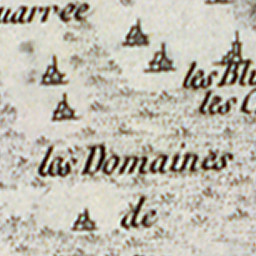 uarrée
les Blu
les C
les Domaines
de